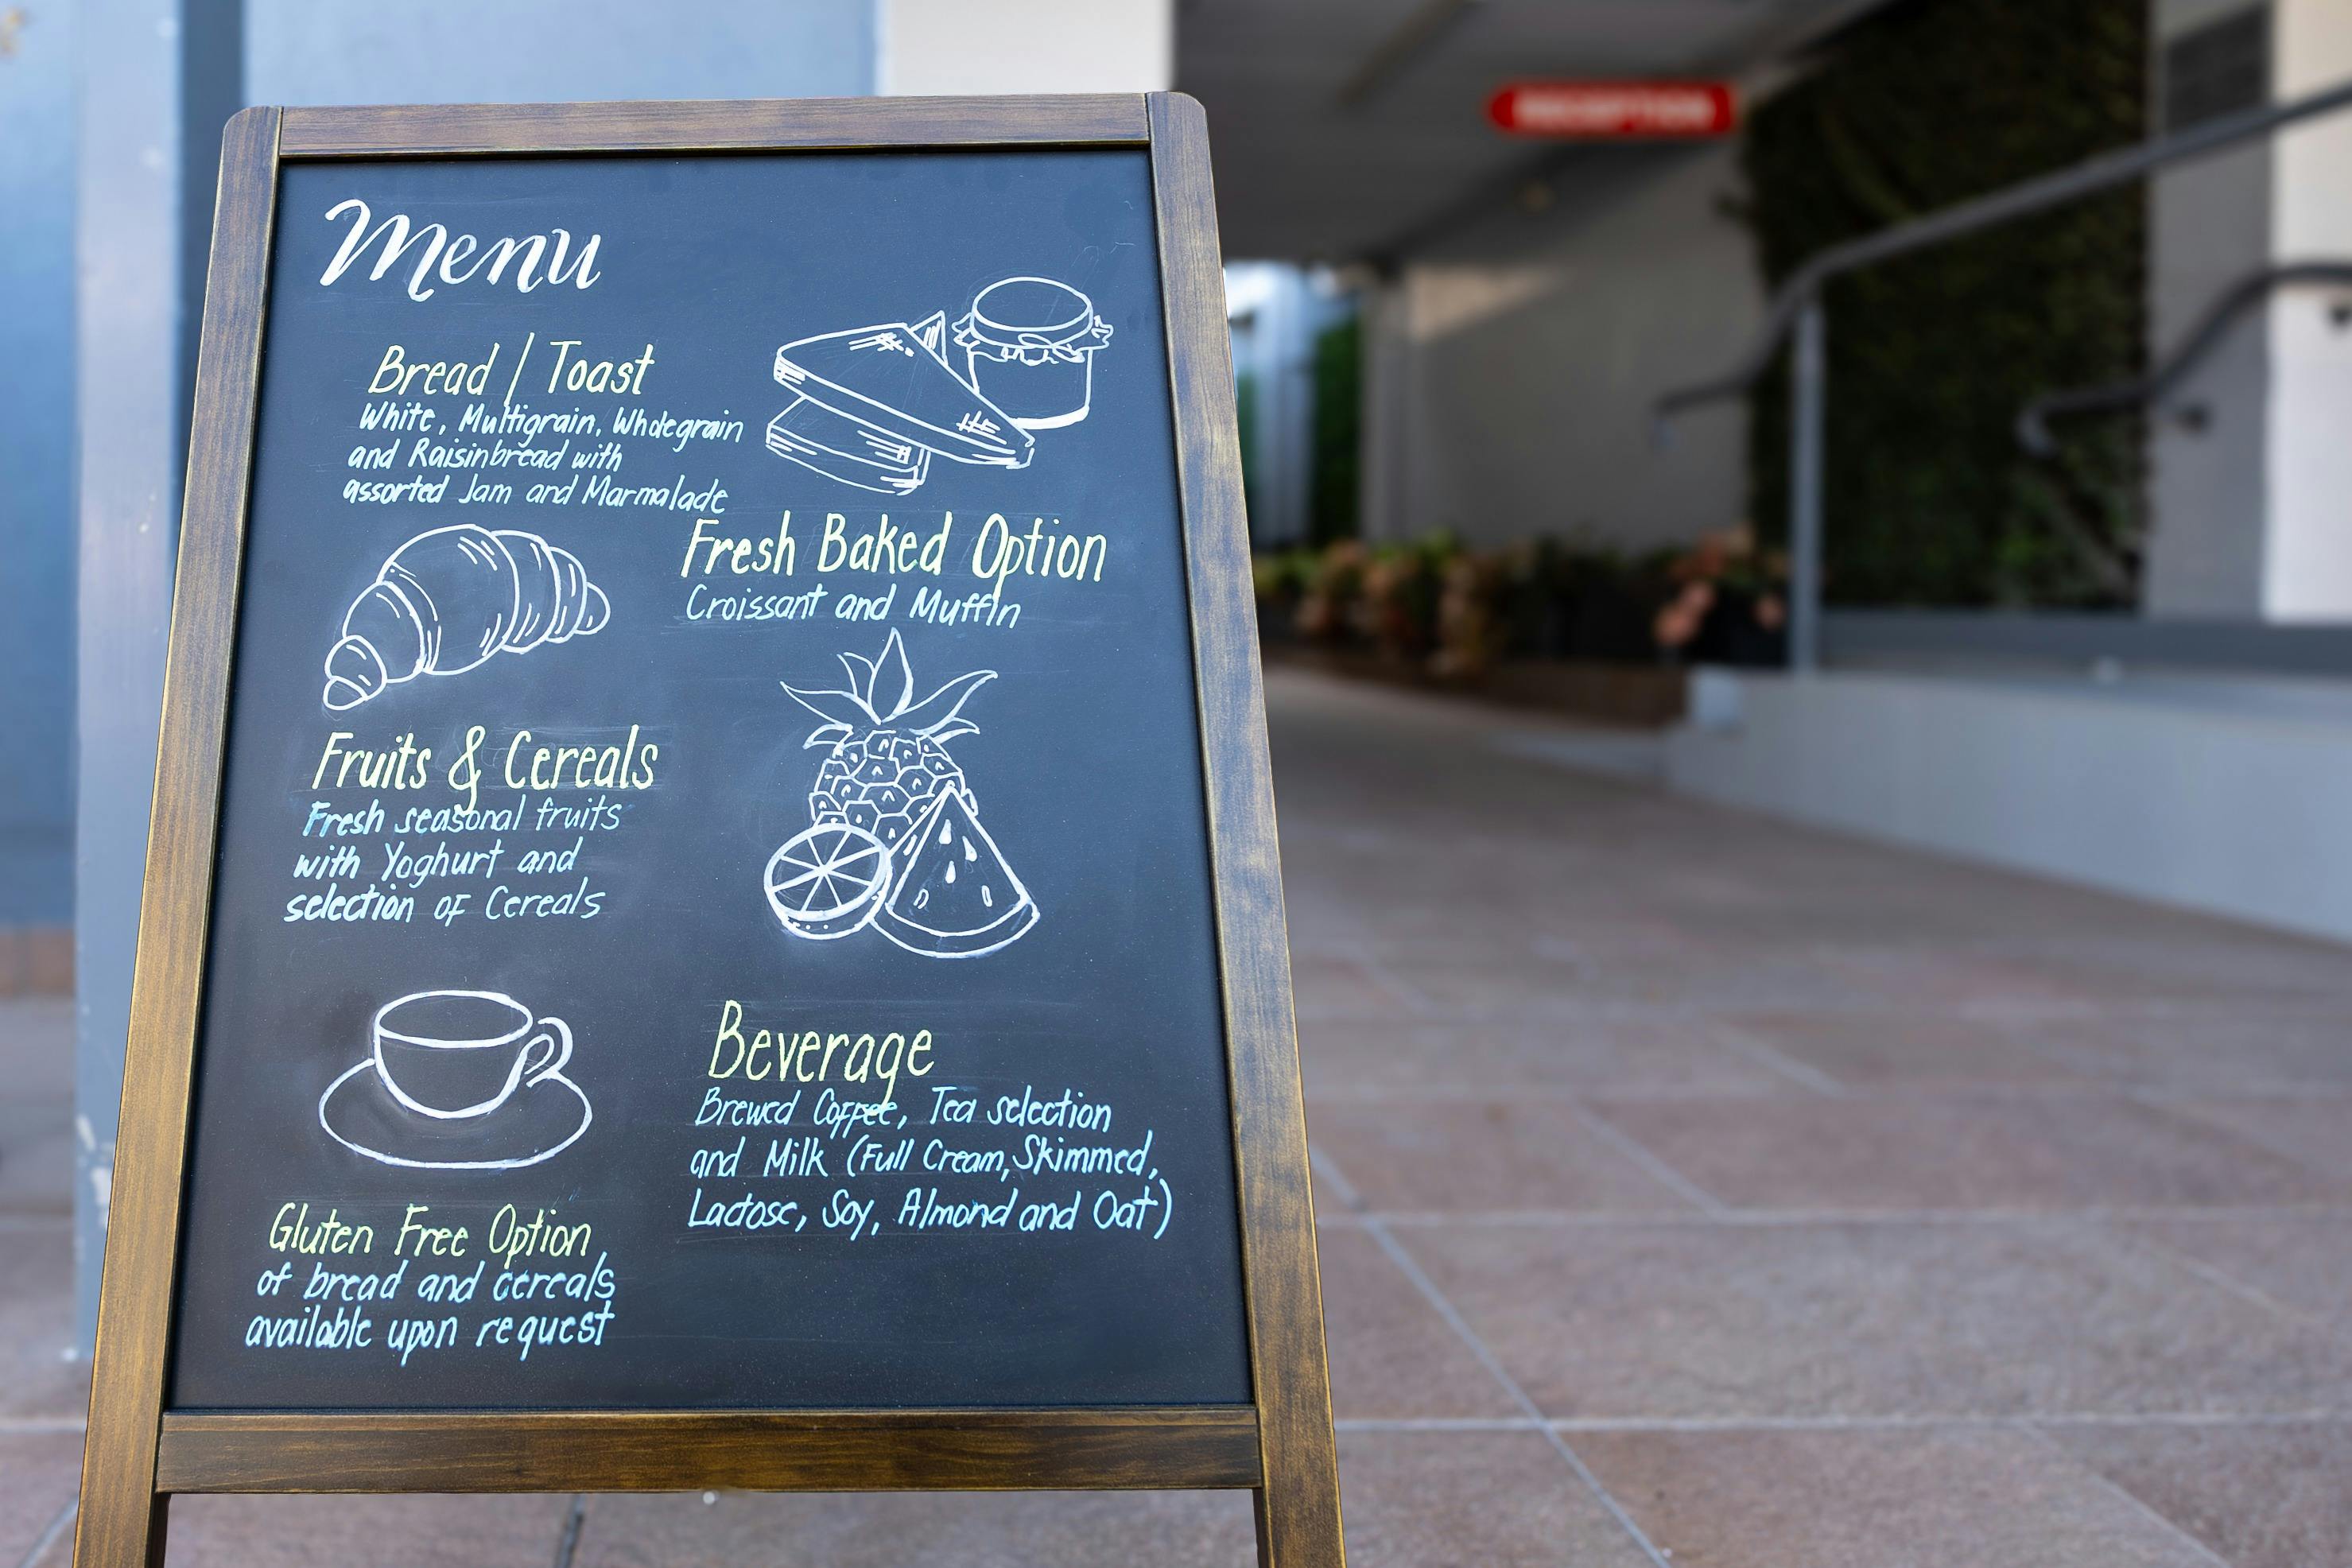 Menu
Bread / Toast
White, Multigrain, Wholegrain
and Raisinbread with
assorted Jam and Marmalade
Fresh Baked Option
Croissant and Muffin
Fruits & Cereals
Fresh seasonal fruits
with Yoghurt and
selection of Cereals
Beverage
Brewed Coffee, Tea selection
and Milk (Full Cream, Skimmed,
Lactose, Soy, Almond and Oat)
Gluten Free Option
of bread and cereals
available upon request
RECEPTION